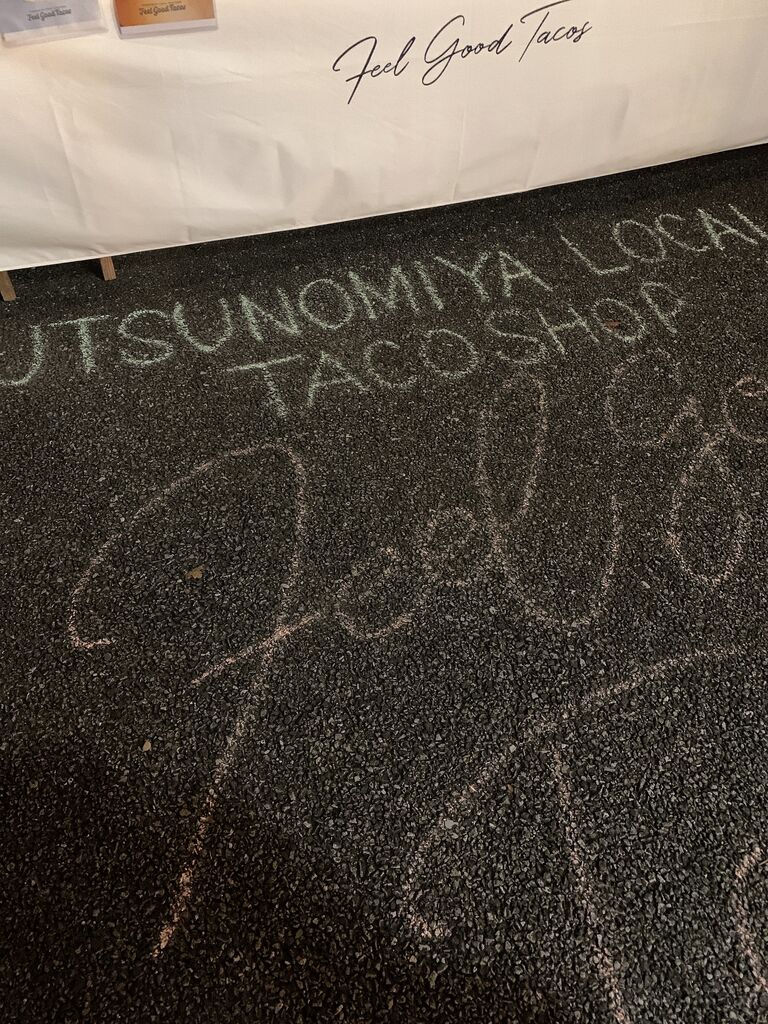 Feel Good Tacos
Feel Good Tacos
Feel Good Tacos
UTSUNOMIYA LOCAL
TACO SHOP
Feel Go
T